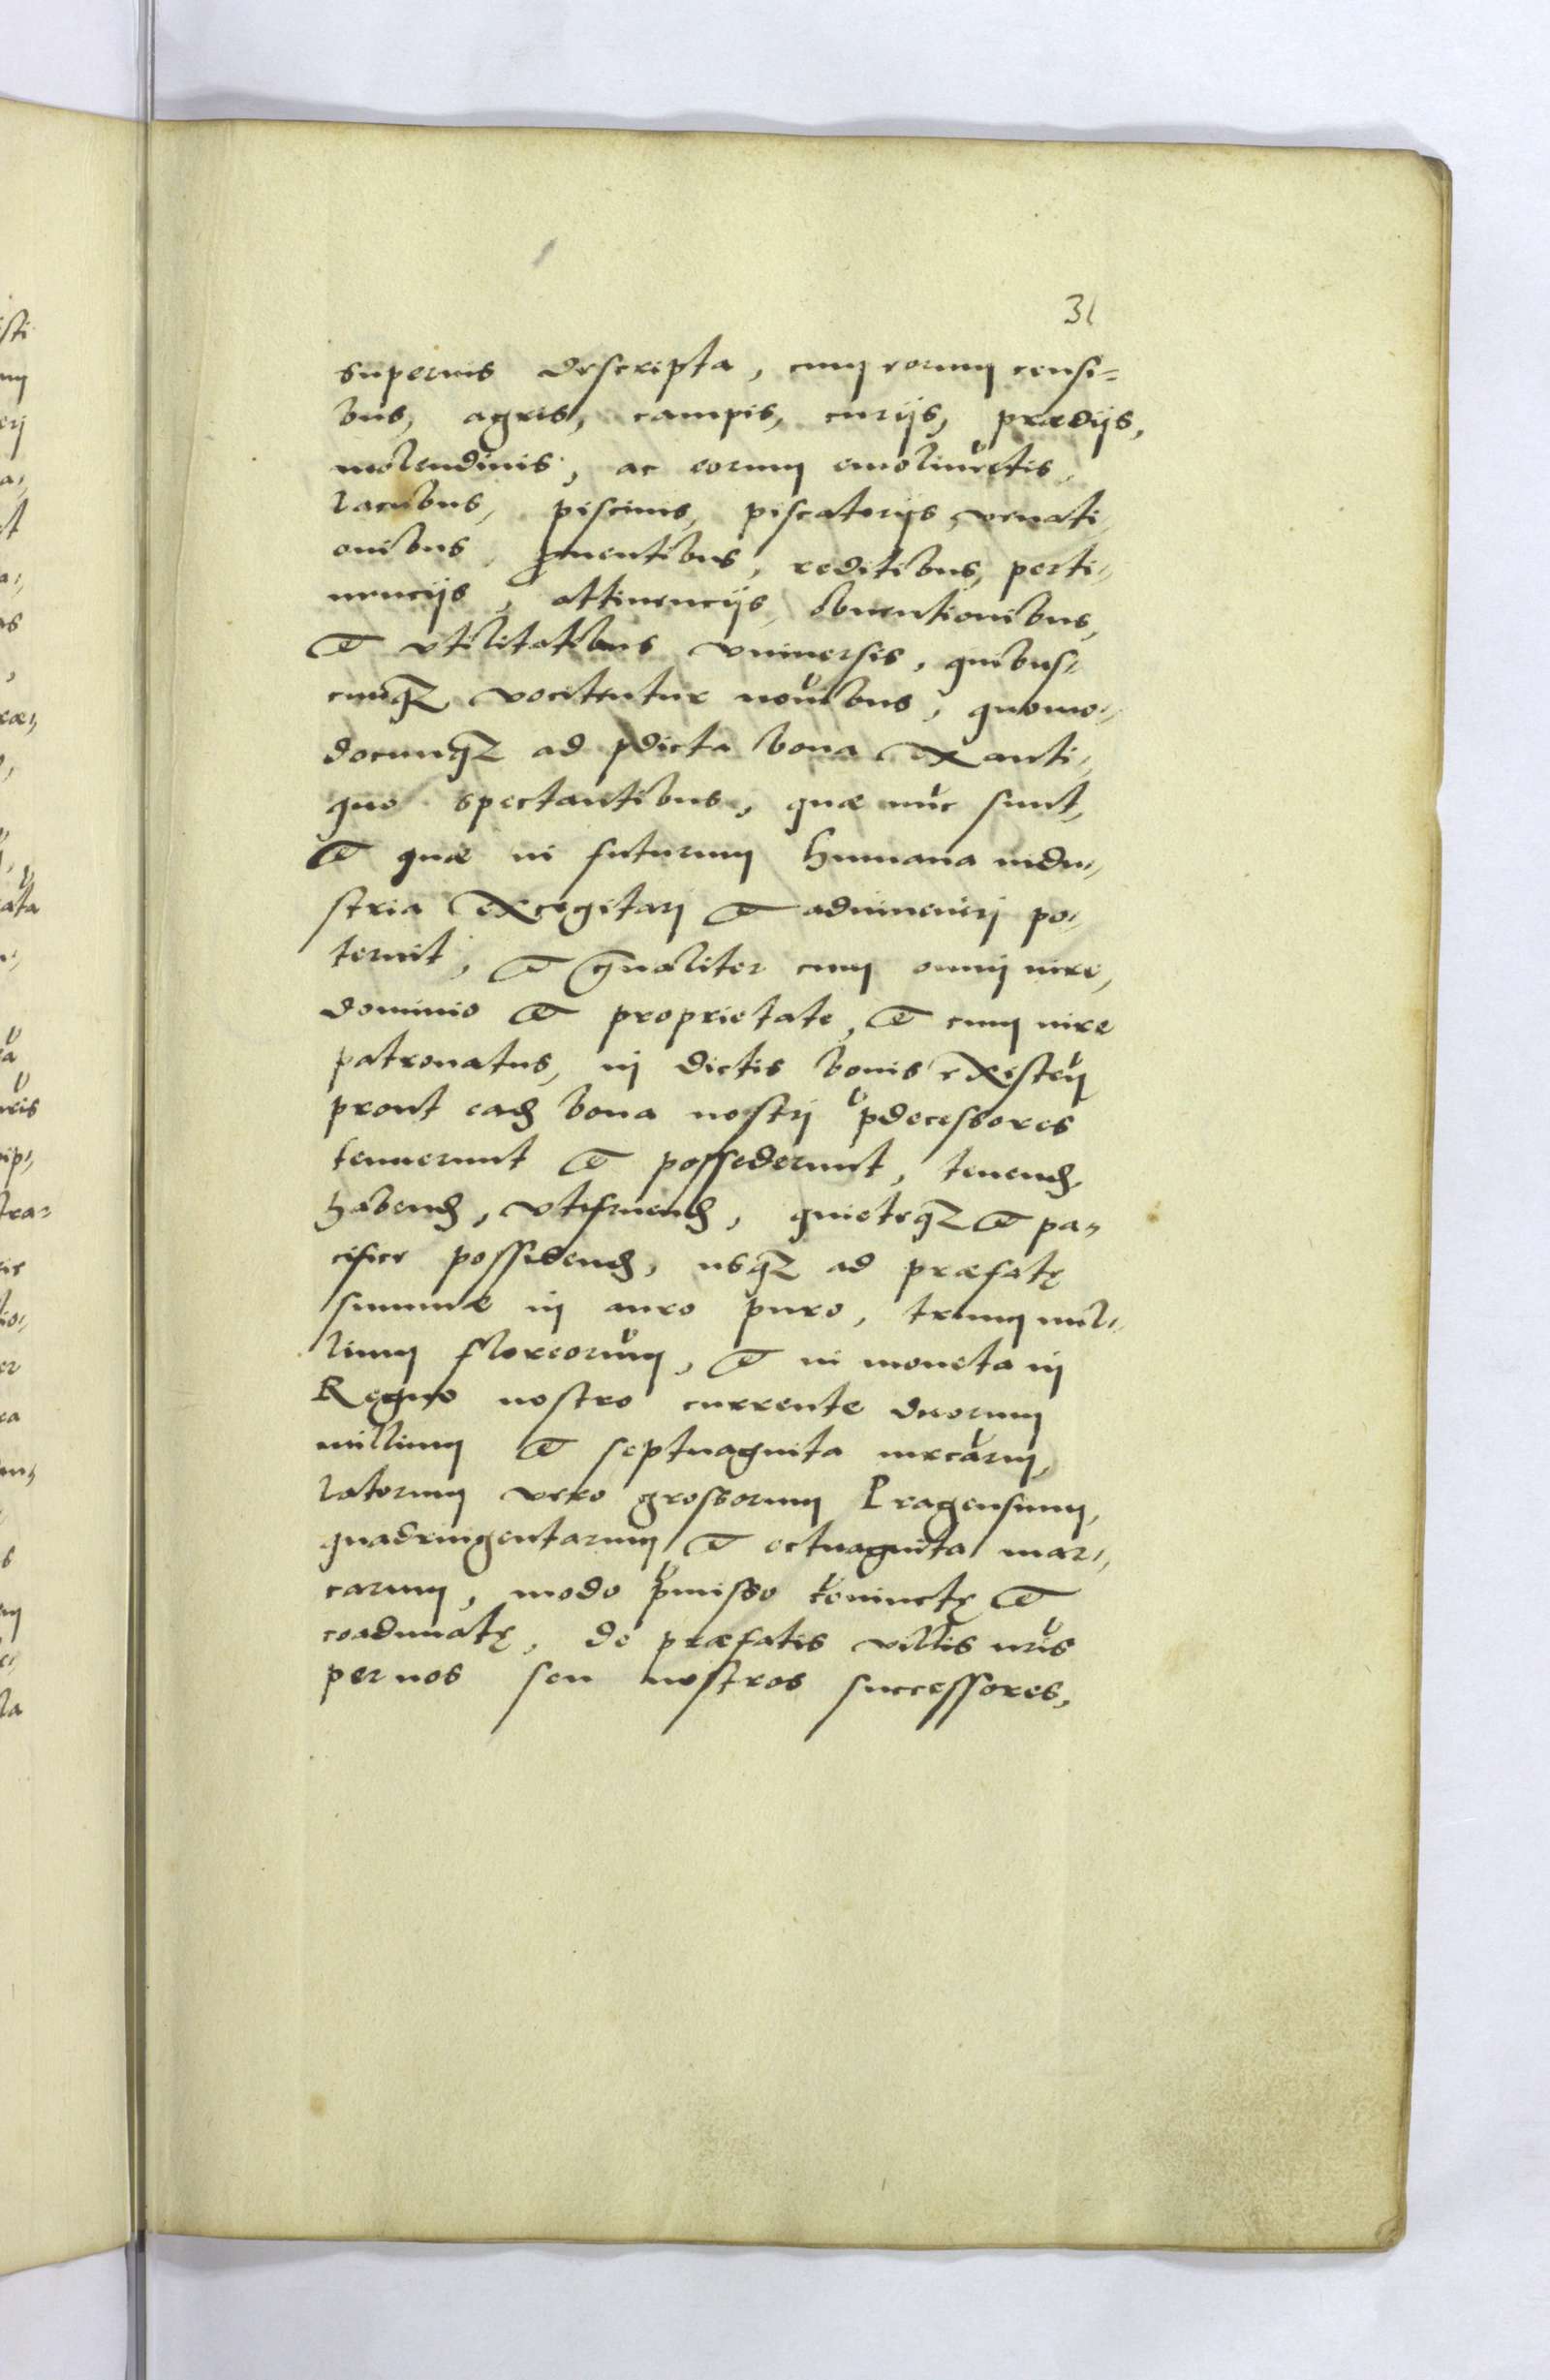 31
superius descripta, cum eorum censi=
bus, agris, campis, curijs, prædijs,
molendinis, ac eorum emolimētis,
lacubus, piscinis, piscatorijs, venati,,
onibus, ꝓuentibus, reditibus, perti,,
nencijs, attinencijs, obuentionibus,
et vtilitatibus vniuersis, quibus,,
cunqꝫ vocitentur noīibus, quomo,,
docunqꝫ ad p̄dicta bona ex anti,,
quo spectantibus, quæ nūc sunt,
et quæ in futurum humana indu,,
stria excogitari et adinueniri po,,
terint, et gn̄aliter cum omni iure,
dominio et proprietate, et cum iure
patronatus, in dictis bonis existen̄
prout eadꝫ bona nostri p̄decessores
tenuerunt et possederunt, tenendꝫ
habendꝫ, vtifruendꝫ, quieteqꝫ et pa,,
cifice possidendꝫ, usqꝫ ad præfatę
summæ in auro puro, trium mil,,
lium florenorū, et in moneta in
Regno nostro currente duorum
millium et septuaginta mrcārum,
latorum vero grossorum Pragensium,
quadringentarum et octuaginta mar,,
carum, modo p̄misso cōiunctę et
coadunatę, de præfatis villis nr̄is
per nos seu nostros successores,